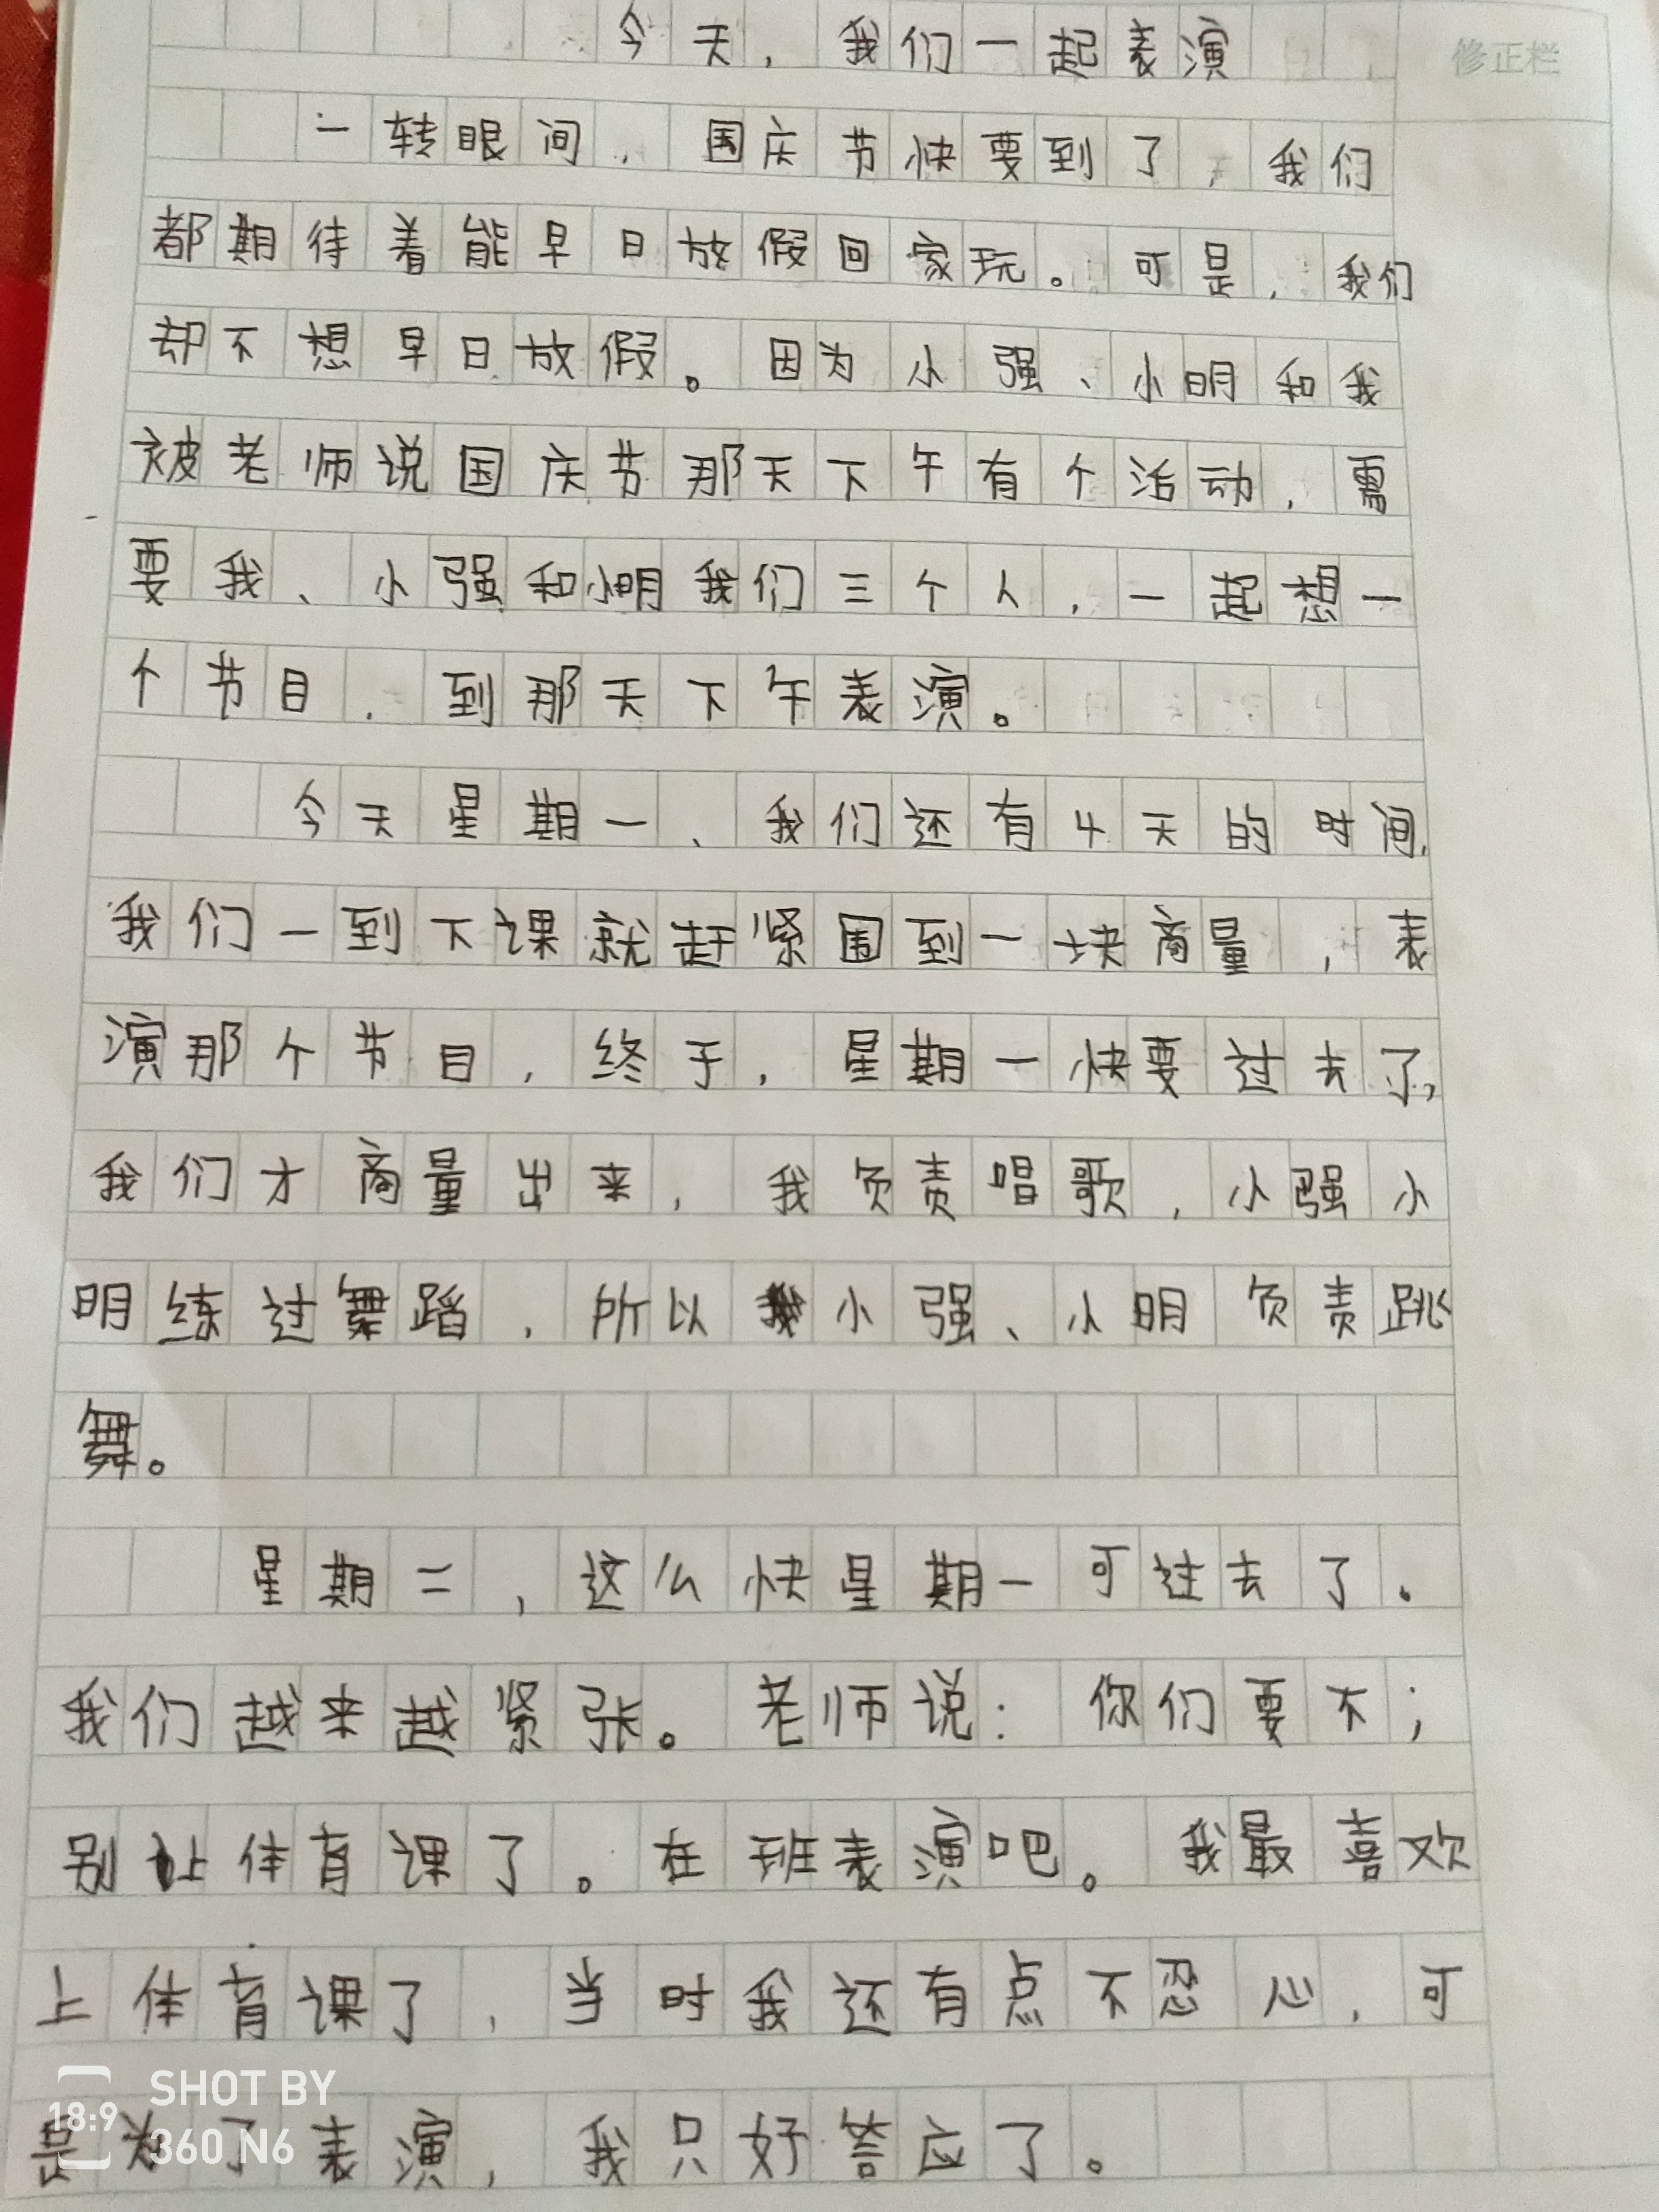 今天，我们一起表演
修正栏
一转眼间，国庆节快要到了，我们
都期待着能早日放假回家玩。可是，我们
却不想早日放假。因为小强、小明和我
被老师说国庆节那天下午有个活动，需
要我、小强和小明我们三个人，一起想一
个节目，到那天下午表演。
今天星期一、我们还有4天的时间，
我们一到下课就赶紧围到一块商量，表
演那个节目，终于，星期一快要过去了，
我们才商量出来，我负责唱歌，小强小
明练过舞蹈，所以小强、小明负责跳
舞。
星期二，这么快星期一可过去了。
我们越来越紧张。老师说：你们要不；
别让体育课了。在班表演吧。我最喜欢
上体育课了，当时我还有点不忍心，可
是为了表演，我只好答应了。
SHOT BY
18:9
360 N6